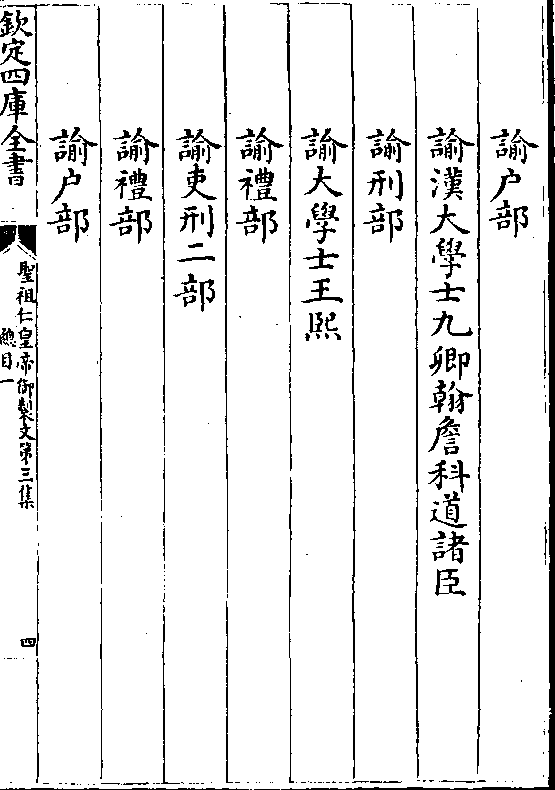 諭户部
諭漢大學士九卿翰詹科道諸臣
諭刑部
諭大學士王熙
諭禮部
諭吏刑二部
諭禮部
諭户部
欽定四庫全書
聖祖仁皇帝御製文第三集
總目一
四